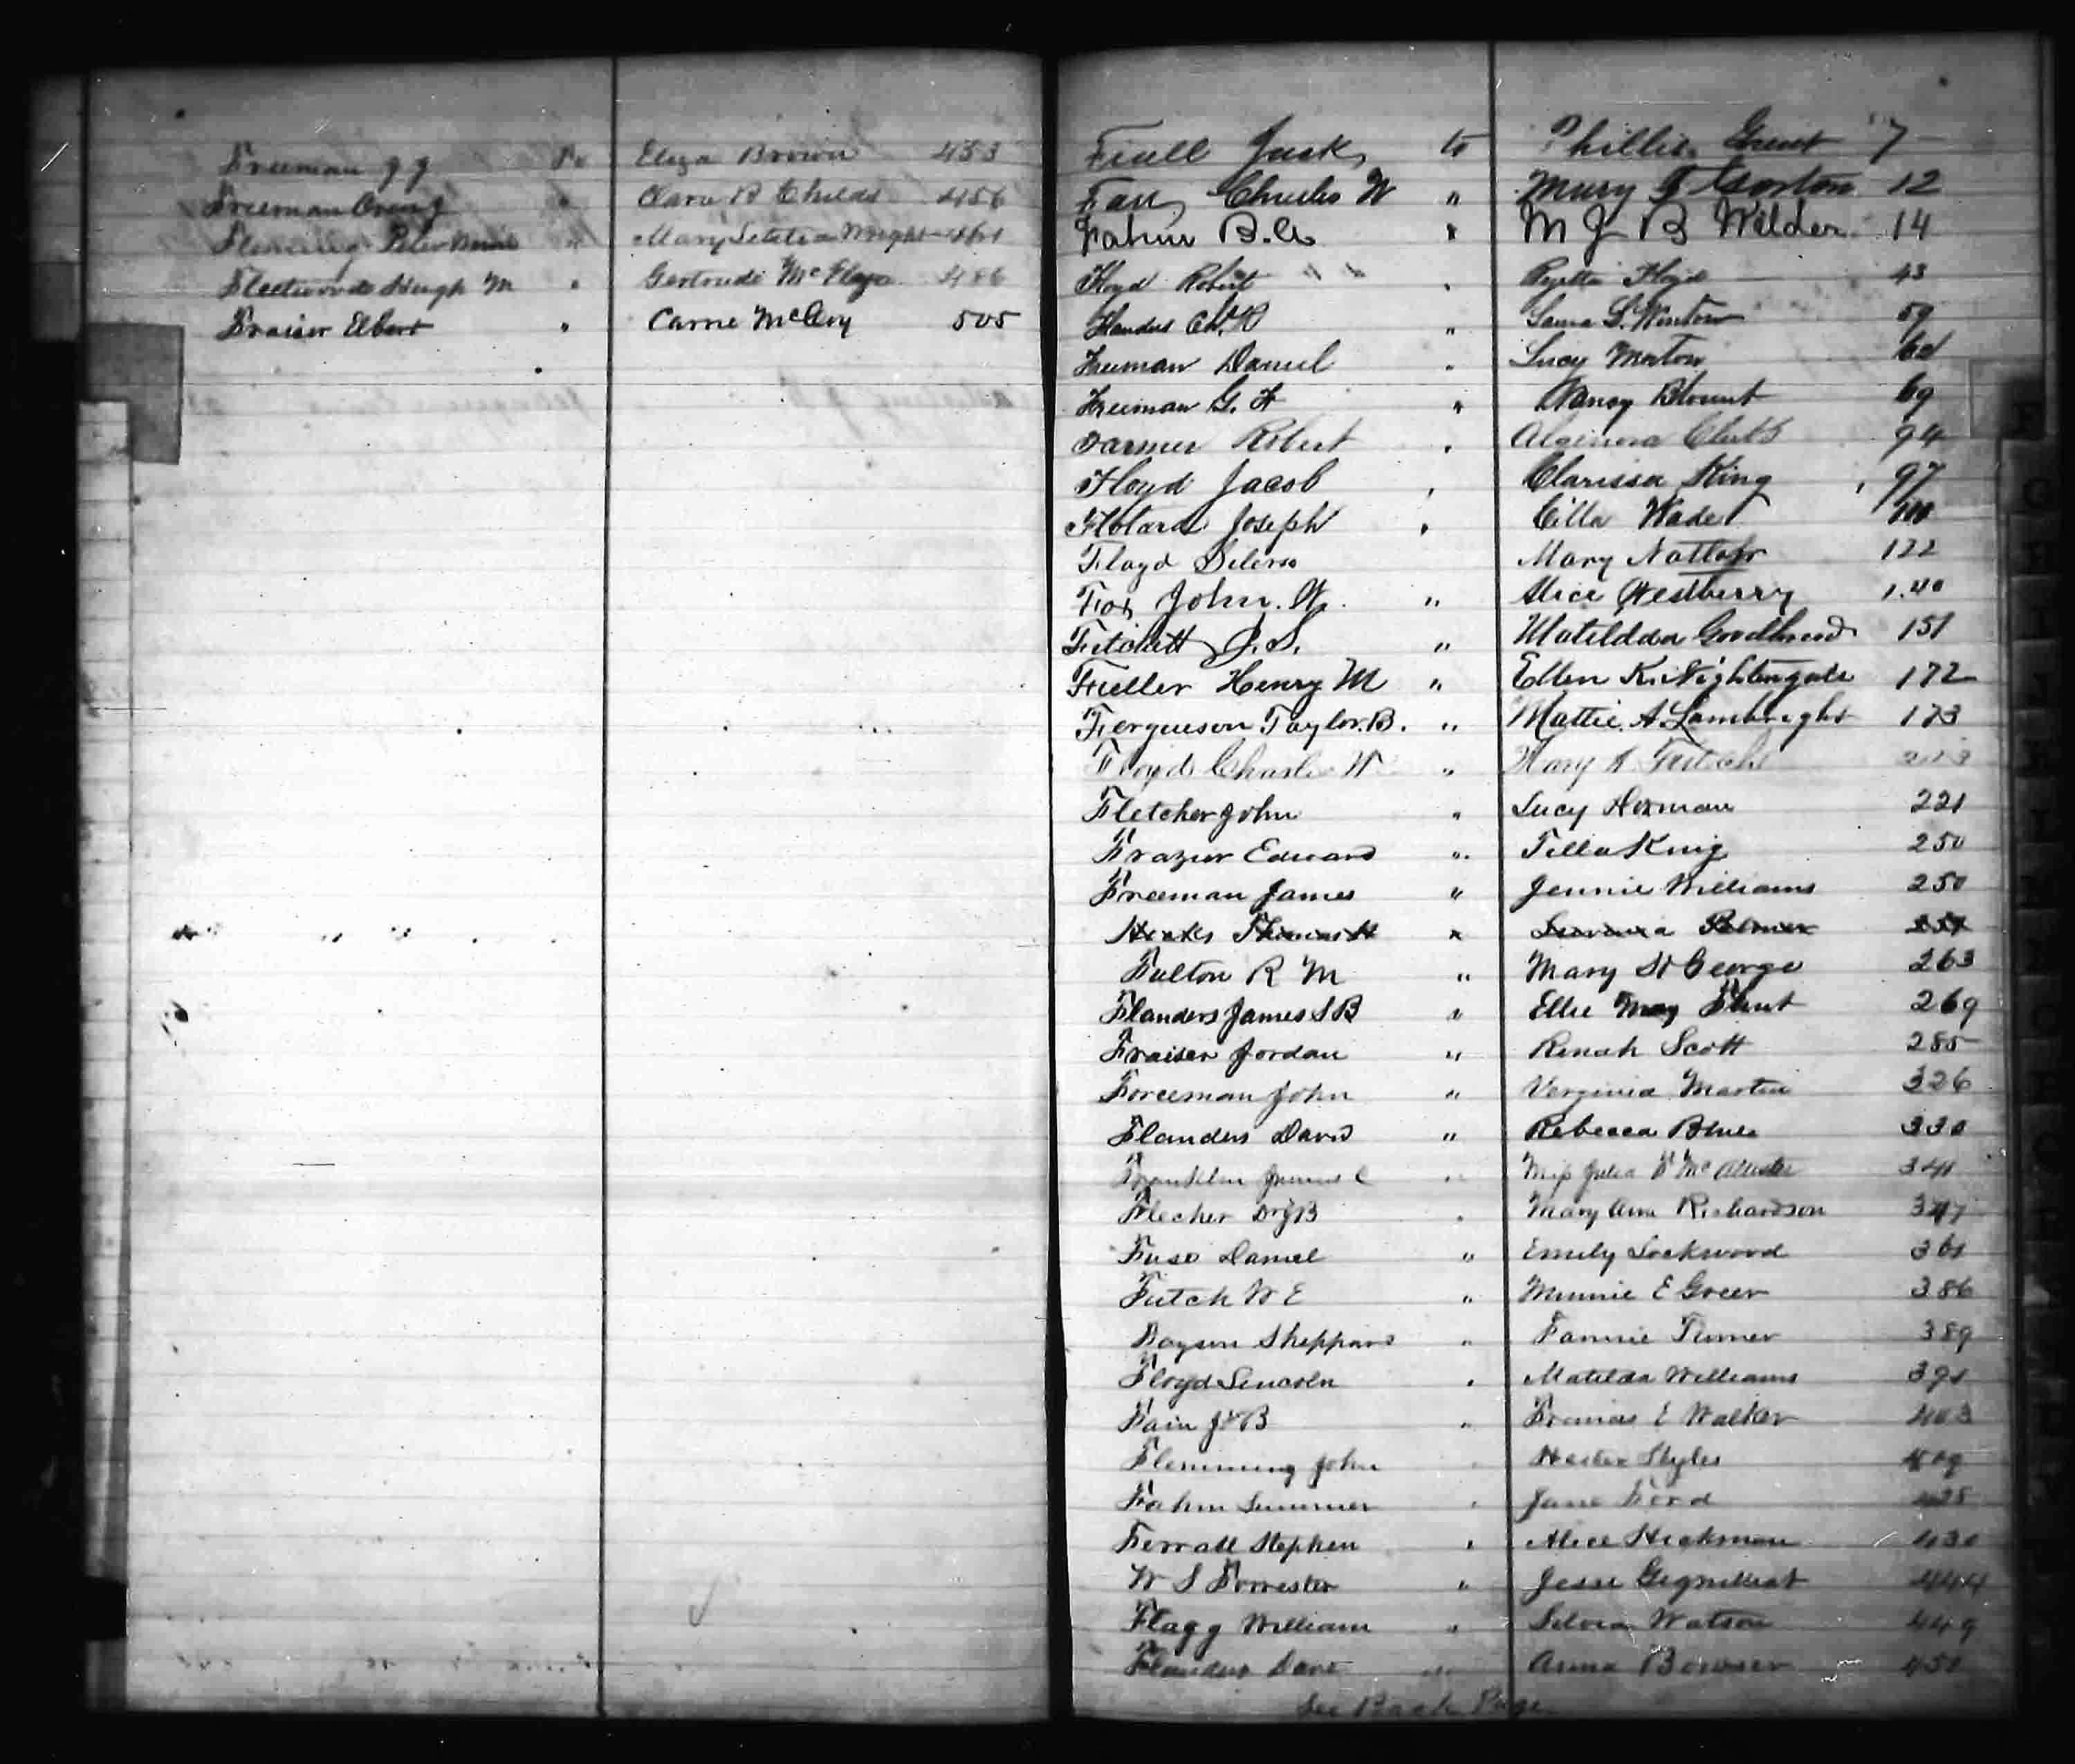 Freeman J J To Eliza Brown 453
Freeman " Clara B Childs 456
Fleming Peter " Mary Letitia Wright 461
Fleetwood Hugh M " Gertrude 486
Fraiser Elbert " Carrie McCloy 505
Fiall Jack to Phillis Grant 7
Farr Charles W " Mary F Gorton 12
Fahm B.A. " M J B Wilder 14
Floyd Robert " Floyd 43
Flanders " Winton 59
Freeman Daniel " Lucy Morton
Freeman G. F " Nancy Blount 69
Farmer Robert " 94
Floyd Jacob " Clarissa King 97
Joseph " Cilla Wade
Floyd Mary 122
Fox John. W. " Alice Westberry 140
Fitchett J. S. " Matildda Goodbread 151
Fuller Henry M " Ellen K. Nightengale 172
Fergueson Taylor. B. " Mattie. A. Lambright 173
Floyd Charls W " Mary A
Fletcher John " Lucy Horman 221
Frazier Edward " Tilla King 250
Freeman James " Jennie Williams 250
Hicks Thomas H " Palmer 257
Fulton R M " Mary St George 263
Flanders James S B " Ellie May Flint 269
Fraiser Jordan " Renah Scott 285
Foreeman John " Verginia Martin 326
Flanders David " Rebecca Blue 330
Franklin James C " Miss Julia McAllister 341
Flecher Dr J B " Mary Ann Richardson 347
Fuse Daniel " Emily Lockwood 361
Futch W E " Minnie E Greer 386
Sheppard " Fannie Turner 389
Floyd Lincoln " Matilda Williams 391
Fain J B " Frances E Walker 403
Flemming John " Hester Styles 409
Fahm Summer " Jane Ford 425
Ferrall Stephen " Alice Hickman 430
W S Forrester " Jesse Gignilliat 444
Flagg William " Silvia Watson 449
Flanders Dave " Anna Bowser 451
See Back Page